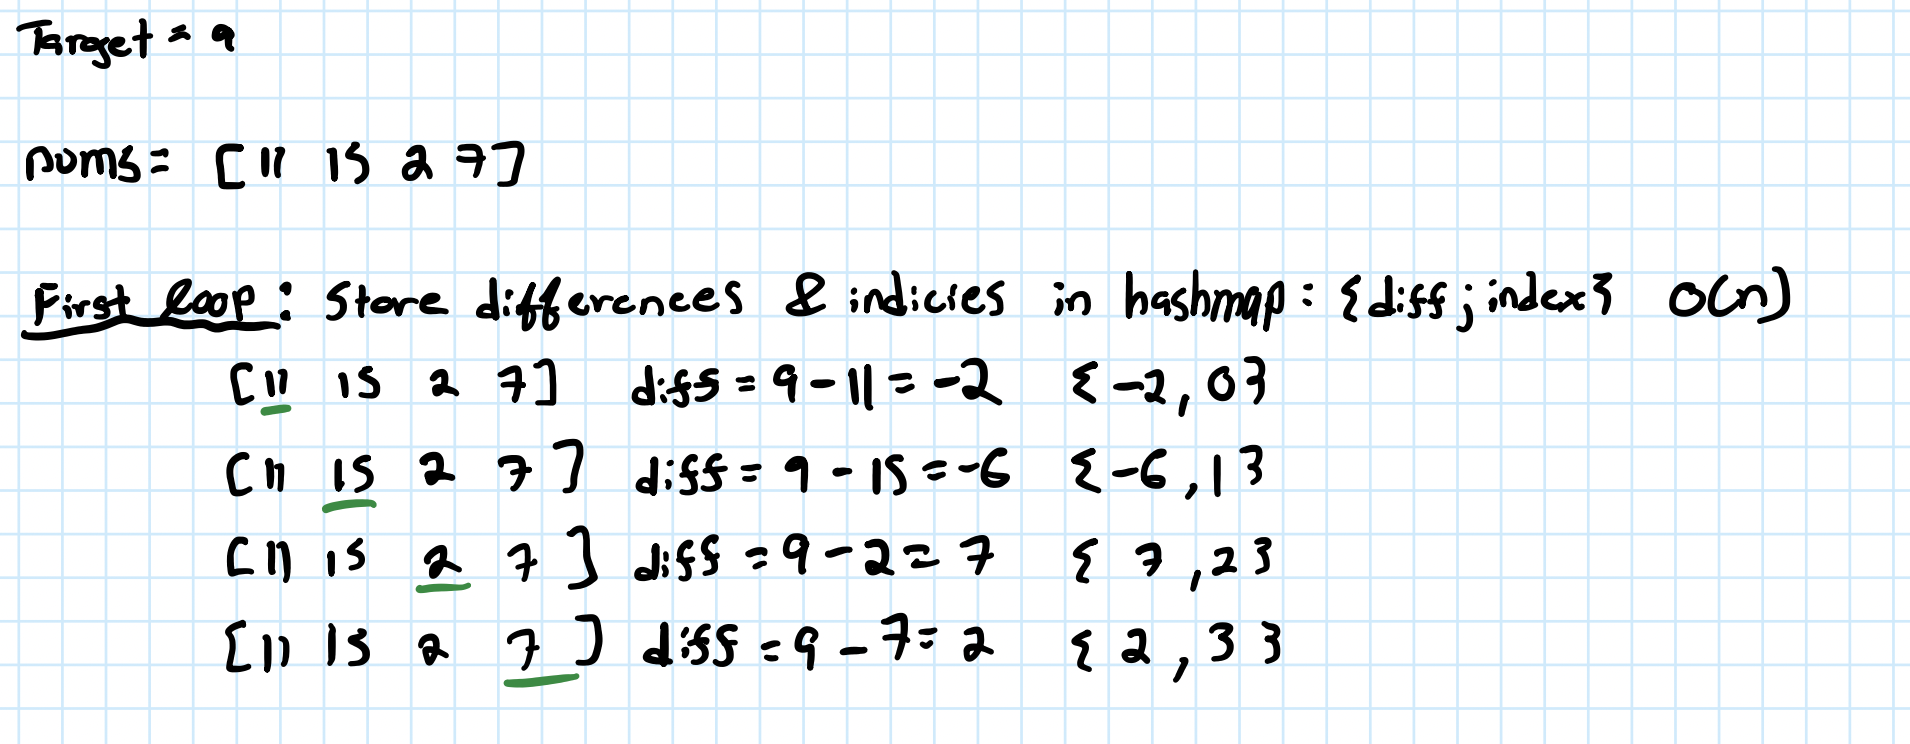 Target = 9
nums = [11 15 2 7]
First loop: Store differences & indicies in hashmap: {diff; index} O(n)
[11 15 2 7] diff = 9 - 11 = -2 {-2, 0}
[11 15 2 7] diff = 9 - 15 = -6 {-6, 1}
[11 15 2 7] diff = 9 - 2 = 7 {7, 2}
[11 15 2 7] diff = 9 - 7 = 2 {2, 3}